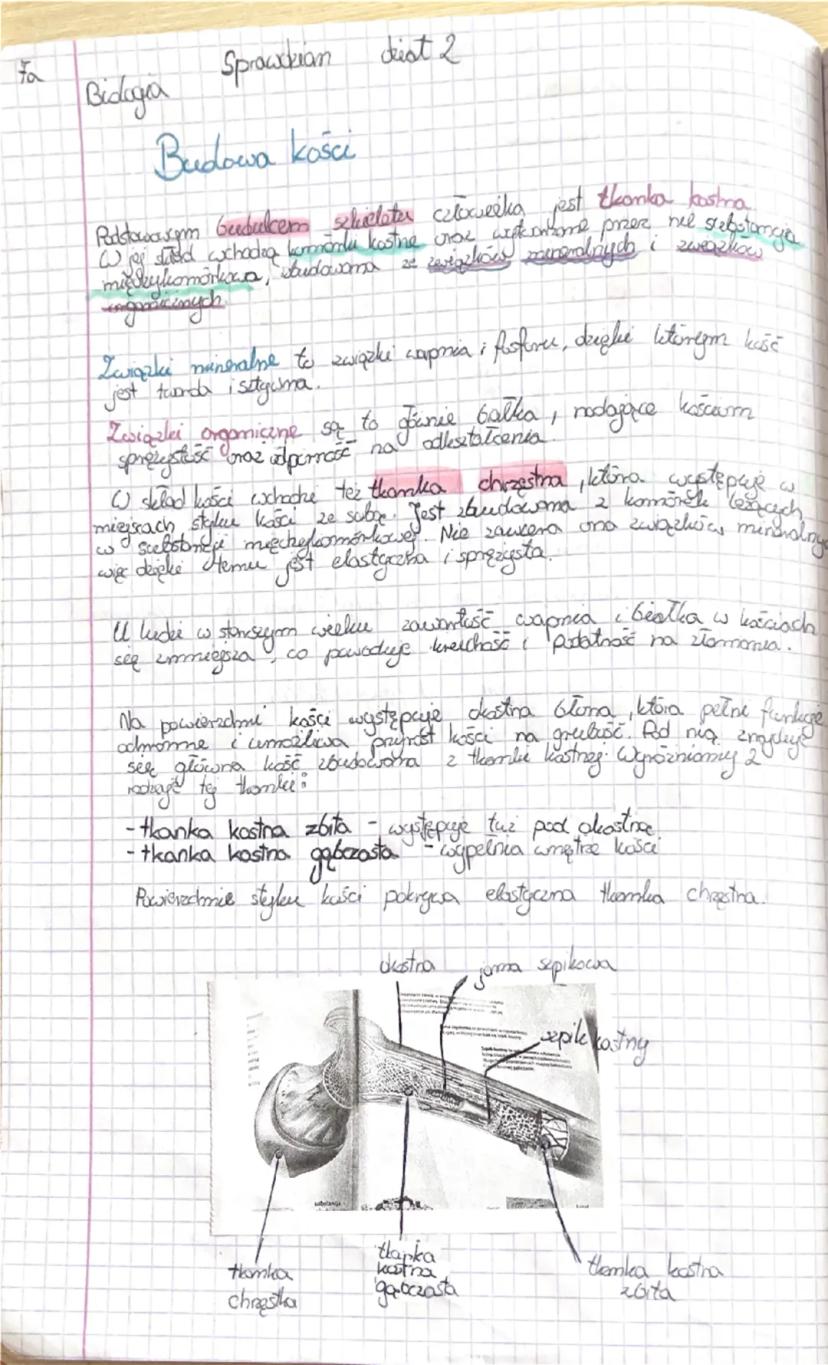 7a
Biologia Sprawdzian dział 2
Budowa kości
Podstawowym budulcem szkieletu człowieka jest tkanka kostna
W jej skład wchodzą komórki kostne oraz wytworzone przez nie substancja
międzykomórkowa, zbudowana ze związków mineralnych i związków
organicznych.
Związki mineralne to związki wapnia i fosforu, dzięki którym kość
jest twarda i sztywna.
Związki organiczne są to głównie białka, nadające kościom
sprężystość oraz odporność na odkształcenia.
W skład kości wchodzi też tkanka chrzęstna, która występuje w
miejscach styku kości ze sobą. Jest zbudowana z komórek leżących
w substancji międzykomórkowej. Nie zawiera ona związków mineralny
więc dzięki temu jest elastyczna i sprężysta.
U ludzi w starszym wieku zawartość wapnia i białka w kościach
się zmniejsza, co powoduje kruchość i podatność na złamania.
Na powierzchni kości występuje okostna błona, która pełni funkcje
ochronne i umożliwia przyrost kości na grubość. Pod nią znajduje
się główna kość zbudowana z tkanki kostnej. Wyróżniamy 2
rodzaje tej tkanki:
- tkanka kostna zbita - występuje tuż pod okostną
- tkanka kostna gąbczasta - wypełnia wnętrze kości
Powierzchnie styku kości pokrywa elastyczna tkanka chrzęstna.
okostna jama szpikowa
szpik kostny
tkanka
chrzęstka
tkanka
kostna
gąbczasta
tkanka kostna
zbita